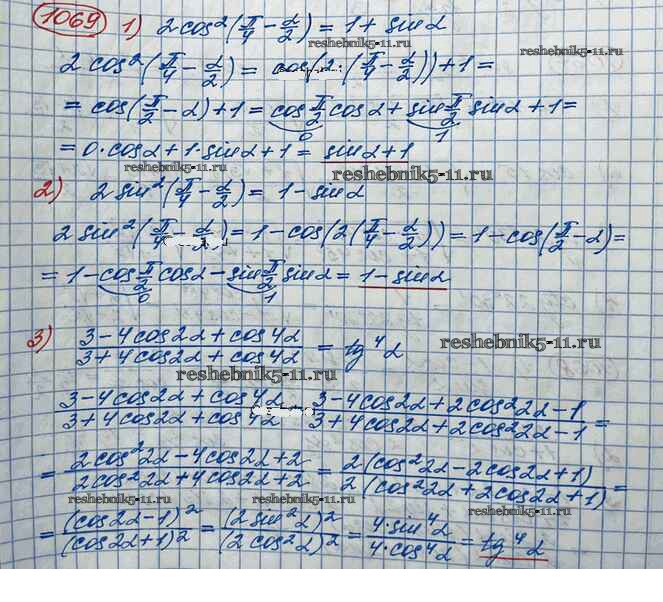 1069 1) 2cos²(π/4 − α/2) = 1 + sinα
2cos²(π/4 − α/2) = cos(2·(π/4 − α/2)) + 1 =
= cos(π/2 − α) + 1 = cos π/2 cosα + sin π/2 sinα + 1 =
0 1
= 0·cosα + 1·sinα + 1 = sinα + 1
reshebnik5-11.ru
2) 2sin²(π/4 − α/2) = 1 − sinα
2sin²(π/4 − α/2) = 1 − cos(2(π/4 − α/2)) = 1 − cos(π/2 − α) =
= 1 − cos π/2 cosα − sin π/2 sinα = 1 − sinα
0 1
reshebnik5-11.ru
3) (3 − 4cos2α + cos4α)/(3 + 4cos2α + cos4α) = tg⁴α
reshebnik5-11.ru
reshebnik5-11.ru
(3 − 4cos2α + cos4α)/(3 + 4cos2α + cos4α) = (3 − 4cos2α + 2cos²2α − 1)/(3 + 4cos2α + 2cos²2α − 1) =
= (2cos²2α − 4cos2α + 2)/(2cos²2α + 4cos2α + 2) = (2(cos²2α − 2cos2α + 1))/(2(cos²2α + 2cos2α + 1)) =
reshebnik5-11.ru reshebnik5-11.ru reshebnik5-11.ru
= (cos2α − 1)²/(cos2α + 1)² = (2sin²α)²/(2cos²α)² = (4·sin⁴α)/(4·cos⁴α) = tg⁴α